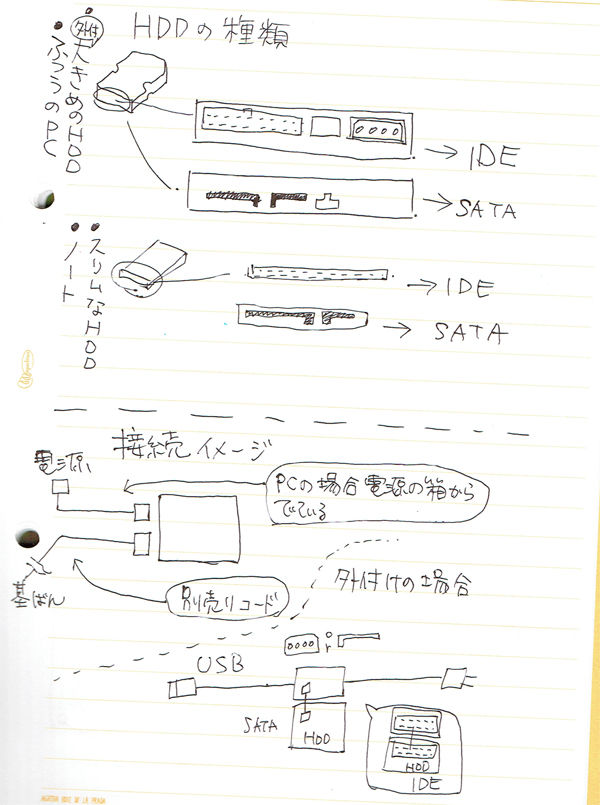 HDDの種類
外付
大きめのHDD
ふつうのPC
IDE
SATA
スリムなHDD
ノート
IDE
SATA
接続イメージ
電源
PCの場合電源の箱から
でている
基ばん
別売りコード
外付けの場合
or
USB
SATA
HDD
HDD
IDE